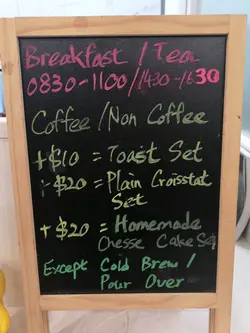 Breakfast / Tea
0830-1100/1430-1630
Coffee / Non Coffee
+$10 = Toast Set
+$20 = Plain Croisstat
Set
+$20 = Homemade
Chesse Cake Set
Except Cold Brew /
Pour Over